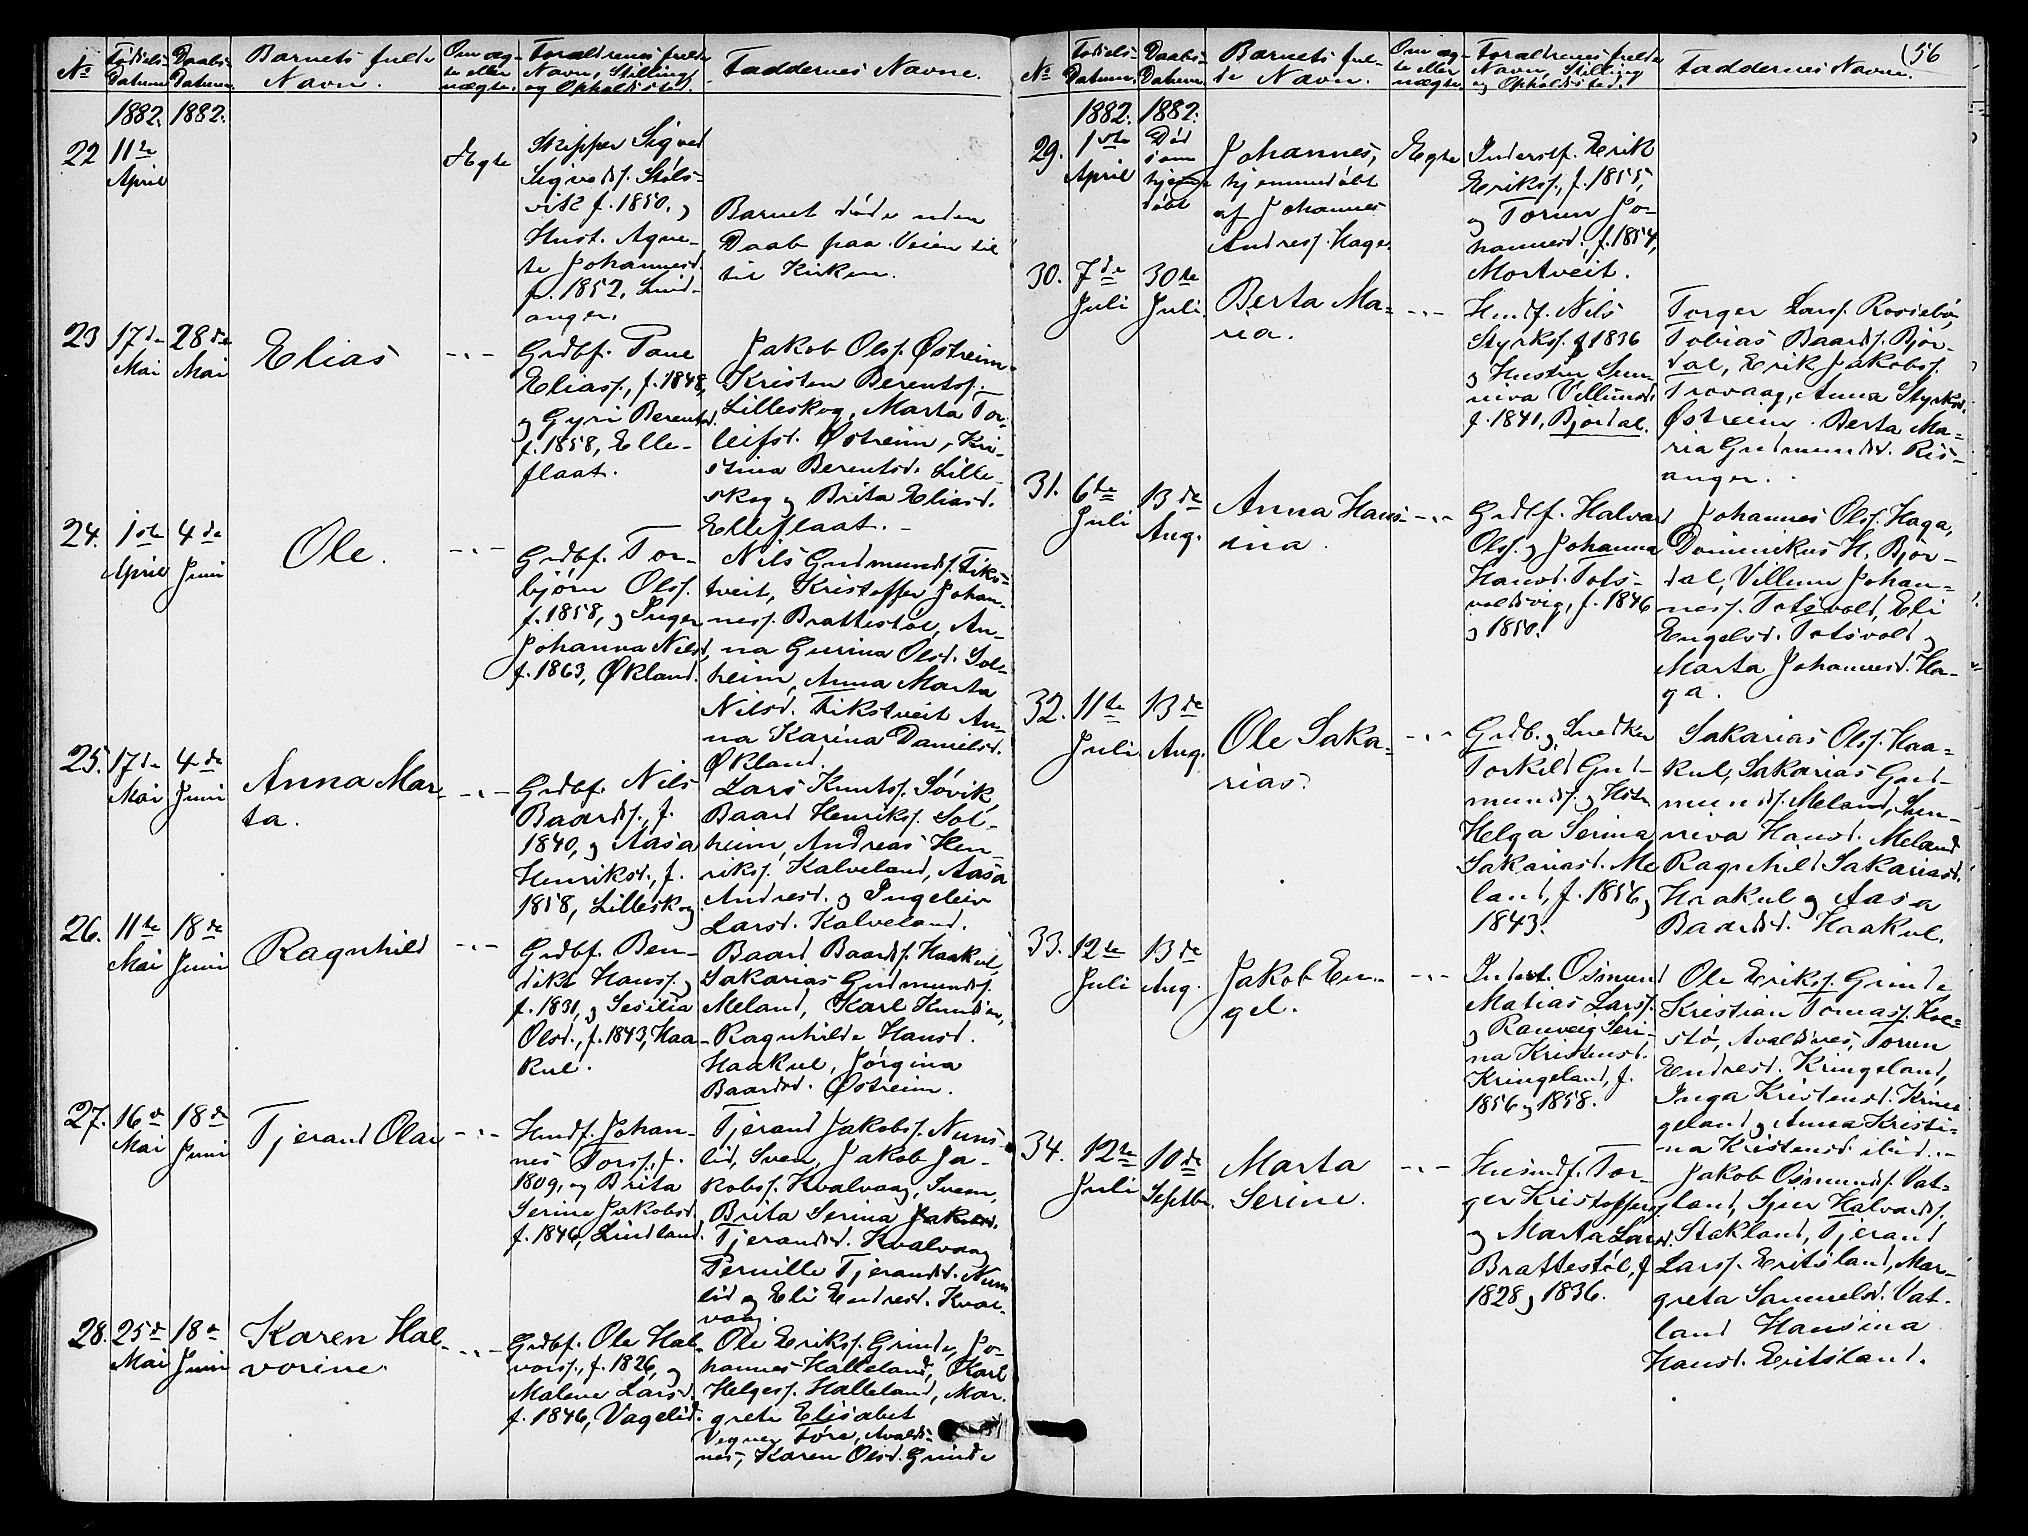 No
Fødsels-
Datum.
Daabs-
Datum.
Barnets fulde
Navn.
Om æg-
te eller
uægte.
Forældrenes fulde
Navn, Stilling
og Opholdssted.
Faddernes Navne.
1882. 1882.
22
11te
April
Ægte
Skipper Sigved
Sigveds. Støls-
vik f. 1850, og
Hust. Agne-
te Johannesd.
f. 1852, Lind-
anger.
Barnet døde uden
Daab paa Veien til
til Kirken.
23
17de
Mai
28de
Mai
Elias
-"-
Grdbf. Tane
Eliass., f. 1848,
og Gyri Berentsd.
f. 1858, Elle-
flaat.
Jakob Ols. Østreim
Kristen Berents.
Lilleskog, Marta Tor-
leifsd. Østreim, Kri-
stina Berentsd. Lille-
skog og Brita Eliasd.
Elleflaat.
24.
1ste
April
4de
Juni
Ole.
-"-
Grdbf. Tor-
bjørn Ols.
f. 1858, og Inger
Johanna Nilsd,
f. 1863, Økland.
Nils Gudmunds. Fiks-
tveit, Kristoffer Johan-
nes. Brattestøl, An-
na Gurina Olsd. Sol-
heim, Anna Marta
Nilsd. Fikstveit An-
na Karina Danielsd.
Økland.
25.
17de
Mai
4de
Juni
Anna Mar-
ta.
-"-
Grdbf. Nils
Baards., f.
1840, og Aasa
Henriksd., f.
1858, Lilleskog.
Lars Knuts. Søvik,
Baard Henriks. Sol-
heim, Andreas Hen-
riks. Kalveland, Aasa
Andresd. og Ingeleiv
Larsd. Kalveland.
26.
11te
Mai
18de
Juni
Ragnhild
-"-
Grdbf. Ben-
dikt Hans. og
f. 1831, og Sesilia
Olsd., f. 1843, Haa-
kul.
Baard Baards. Haakul,
Sakarias Gudmunds.
Meland, Karl Knudsen,
Ragnhilde Hansd.
Haakul, Jørgina
Baardsd. Østreim.
27.
16de
Mai
18de
Juni
Tjerand Olai
-"-
Husmf. Johan-
nes Tors., f.
1809, og Brita
Serine Jakobsd.
f. 1846, Lindland.
Tjerand Jakobs. Nums-
lid, Sven, Jakob Ja-
kobs. Kvalvaag, Svein,
Brita Serina Jakobsd.
Tjerandsd. Kvalvaag
Pernille Tjerandsd. Nums
lid og Eli Endresd. Kval-
vaag.
28.
25de
Mai
18de
Juni
Karen Hal-
vorine.
-"-
Grdbf. Ole Hal-
vors., f. 1826, og
Malene Larsd.
f. 1846, Vagelid.
Ole Eriks. Grinde, Jo-
hannes Halleland, Karl
Helges. Halleland, Mar-
grete Elisabet
Vegner Føre, Avalds-
nes, Karen Olsd. Grinde
(56
No
Fødsels-
Datum.
Daabs-
Datum.
Barnets ful-
de Navn.
Om æg-
te eller
uægte.
Forældrenes fulde
Navn, Stilling
og Opholdssted.
Faddernes Navne.
1882. 1882.
29.
1ste
April
Død
som
hjemme
døbt
Johannes,
hjemmedøbt
af Johannes
Andress. Hage.
Ægte
Inderstf. Erik
Eriks., f. 1855,
og Torun Jo-
hannesd., f. 1854,
Mortveit.
30.
7de
Juli
30te
Juli
Berta Ma-
ria.
-"-
Husmf. Nils
Styrks. f 1836
og Hustru Sun-
niva Villumsd.
f. 1841, Bjordal.
Torger Lars. Rossebø,
Tobias Baards. Bjor-
dal, Erik Jakobs.
Trovaag, Anna Styrksd.
Østreim. Berta Ma-
ria Gudmundsd. Ris-
anger.
31.
6te
Juli
13de
Aug.
Anna Hans-
ina.
-"-
Grdbf. Halvard
Ols. og Johanna
Hansd. Tots-
voldsvig, f. 1846
og 1850.
Johannes Ols. Haga,
Dominikus H. Bjor-
dal, Villum Johan-
nes. Totsvold, Eli
Engelsd. Totsvold og
Marta Johannesd. Ha-
ga.
32.
11te
Juli
13de
Aug.
Ole Saka-
rias.
-"-
Grdb. og Snedker
Torkild Gud-
munds. og Hstr.
Helga Serina
Sakariasd. Me
land, f. 1856 og
1843.
Sakarias Ols. Haa-
kul, Sakarias Gud-
munds. Meland, Sun-
niva Hansd. Meland
Ragnhild Sakariasd.
Haakul og Aasa
Baardsd. Haakul.
33.
12te
Juli
13de
Aug.
Jakob En-
gel.
-"-
Inderst. Osmund
Matias Lars.
og Ranveig Seri-
na Kristensd.
Kringeland, f.
1856 og 1858.
Ole Eriks. Grinde
Kristian Tomas. Kol-
stø, Avaldsnes, Torun
Endresd. Kringeland,
Inga Kristensd. Kringe
geland og Anna Kristi-
na Kristensd ibid.
34.
12te
Juli
10de
Septbr.
Marta
Serine.
-"-
Husmdf. Tor-
ger Kristoffers.
og Marta Larsd.
Brattestøl, f.
1828 og 1836.
Jakob Osmunds. Vat-
land, Sjur Halvards.
Stakland, Tjerand
Lars. Eritsland, Mar-
greta Samuelsd. Vat-
land Hansina
Hansd. Eritsland.